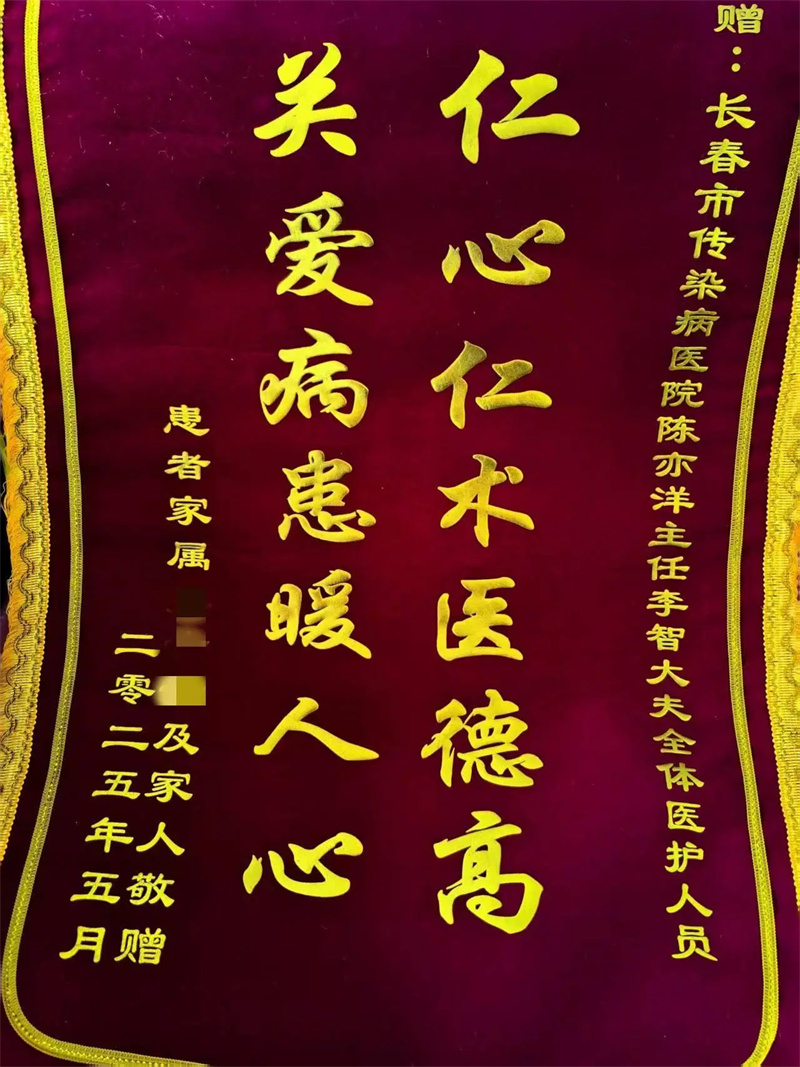 赠：长春市传染病医院陈亦洋主任李智大夫全体医护人员
仁心仁术医德高
关爱病患暖人心
患者家属
及家人敬赠
二零二五年五月